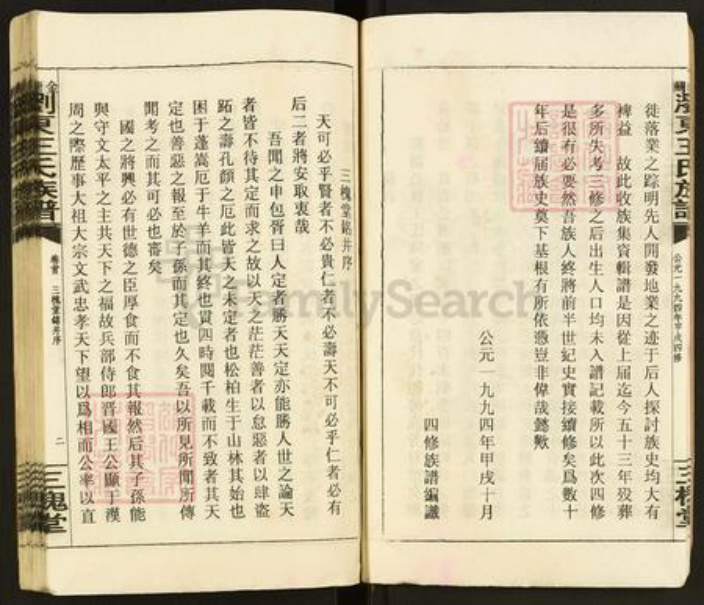 瀏東王氏族譜
公元一九九四年甲戌四修
三槐堂
徙落業之踪明先人開發地業之迹于后人探討族史均大有
裨益　故此收族集資輯譜是因從上屆迄今五十三年歿葬
多所失考三修之后出生人口均未入譜記載所以此次四修
是很有必要然吾族人終將前半世紀史實接續修矣爲數十
年后續屆族史奠下基根有所依憑豈非偉哉懿歟
公元一九九四年甲戌十月
四修族譜編議
三槐堂銘并序
天可必乎賢者不必貴仁者不必壽天不可必乎仁者必有
后二者將安取衷哉
吾聞之申包胥曰人定者勝天天定亦能勝人世之論天
者皆不待其定而求之故以天之茫茫善者以怠惡者以肆盜
跖之壽孔顏之厄此皆天之未定者也松柏生于山林其始也
困于蓬蒿厄于牛羊而其終也貫四時閱千載而不致者其天
定也善惡之報至於子孫而其定也久矣吾以所見所聞所傳
聞考之而其可必也審矣
國之將興必有世德之臣厚食而不食其報然后其子孫能
與守文太平之主共天下之福故兵部侍郎晋國王公顯于漢
周之際歷事大祖大宗文武忠孝天下望以爲相而公率以直
瀏東王氏族譜
卷首　三槐堂銘并序
二
三槐堂
FamilySearch